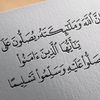 إن الله وملائكته يصلون على
يا أيها الذين آمنوا
صلوا عليه وسلموا تسليما